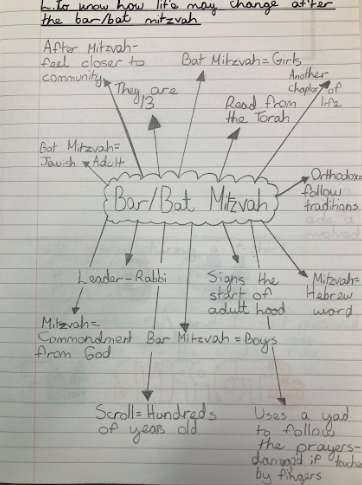 L.To know how life may change after
the bar/bat mitzvah
After Mitzvah-
feel closer to
community
They are
13
Bat Mitzvah = Girls
Read from
the Torah
Another
chapter of
life
Bat Mitzvah=
Jewish Adult
Bar/Bat Mitzvah
Orthodox=
follow
traditions
Leader-Rabbi
Signs the
start of
adult hood
Mitzvah=
Hebrew
word
Mitzvah=
Commondment
from God
Bar Mitzvah = Boys
Scroll=Hundreds
of years old
Uses a yad
to follow
the prayers-
damged if touched
by fingers